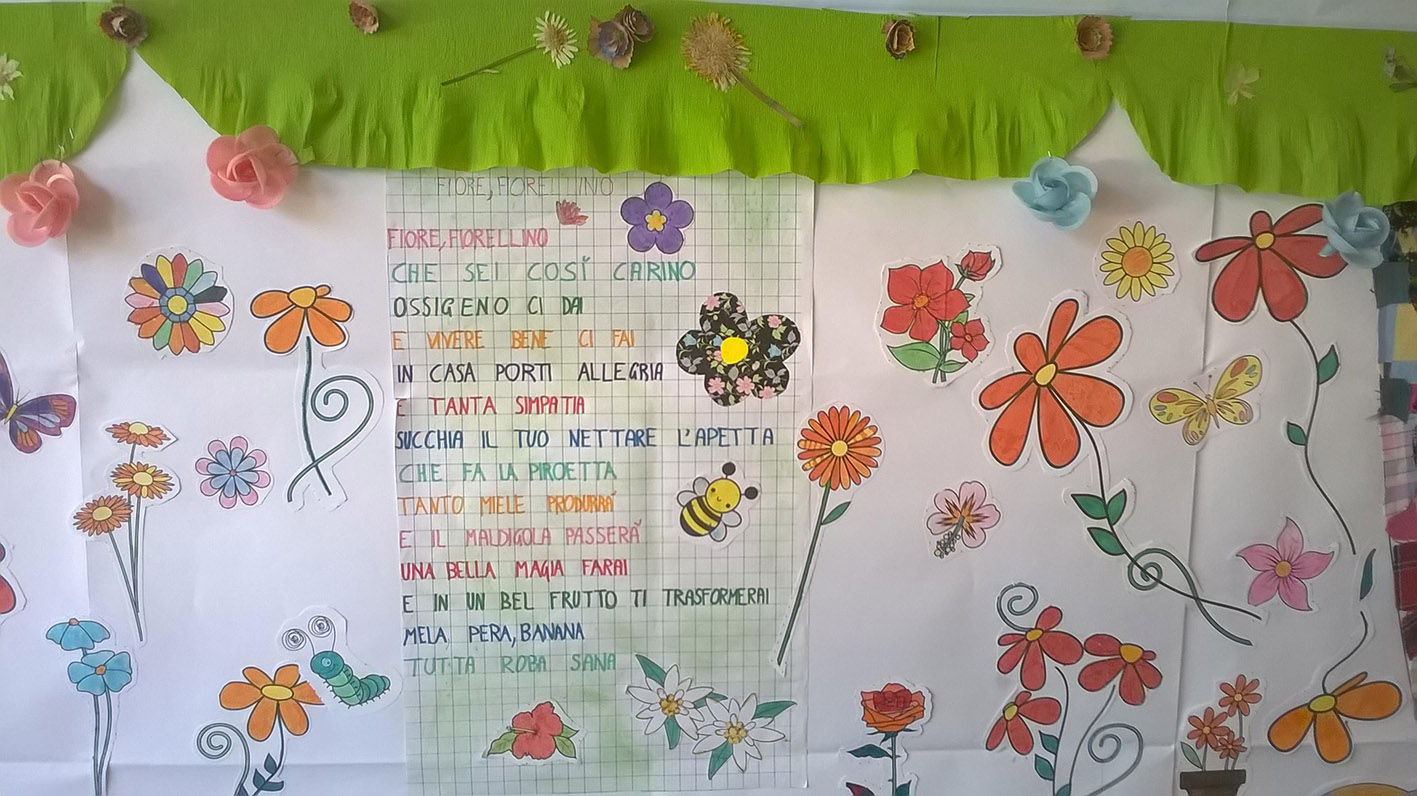 FIORE, FIORELLINO
FIORE, FIORELLINO
CHE SEI COSÍ CARINO
OSSIGENO CI DAI
E VIVERE BENE CI FAI
IN CASA PORTI ALLEGRIA
E TANTA SIMPATIA
SUCCHIA IL TUO NETTARE L'APETTA
CHE FA LA PIROETTA
TANTO MIELE PRODURRÁ
E IL MALDIGOLA PASSERÁ
UNA BELLA MAGIA FARAI
E IN UN BEL FRUTTO TI TRASFORMERAI
MELA PERA, BANANA
TUTTA ROBA SANA